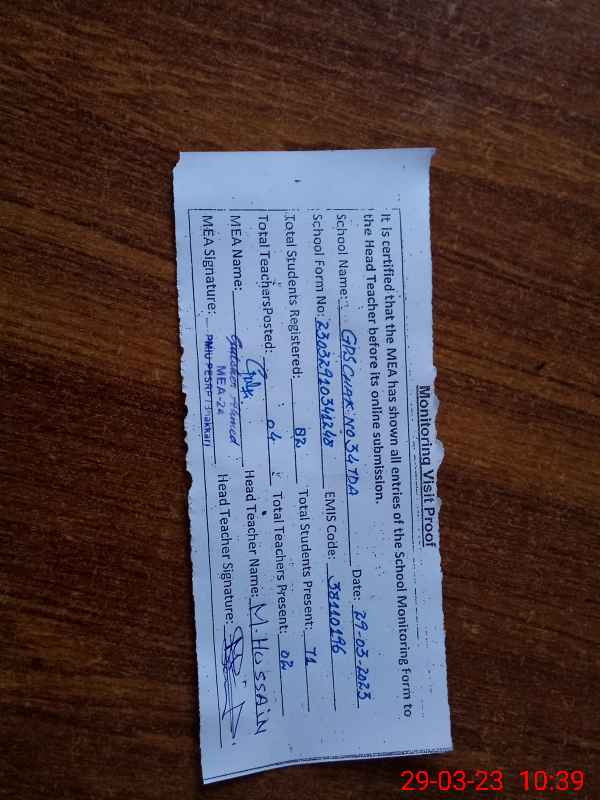 Monitoring Visit Proof
It is certified that the MEA has shown all entries of the School Monitoring Form to
the Head Teacher before its online submission.
School Name: GPS CHAK NO 34 TDA Date: 29-03-2023
School Form No: 230329103412 EMIS Code: 38110196
Total Students Registered: 82 Total Students Present: 71
Total TeachersPosted: 04 Total Teachers Present: 02
MEA Name: Ahmed Head Teacher Name: M. HUSSAIN
MEA-24
MEA Signature: Head Teacher Signature:
29-03-23 10:39